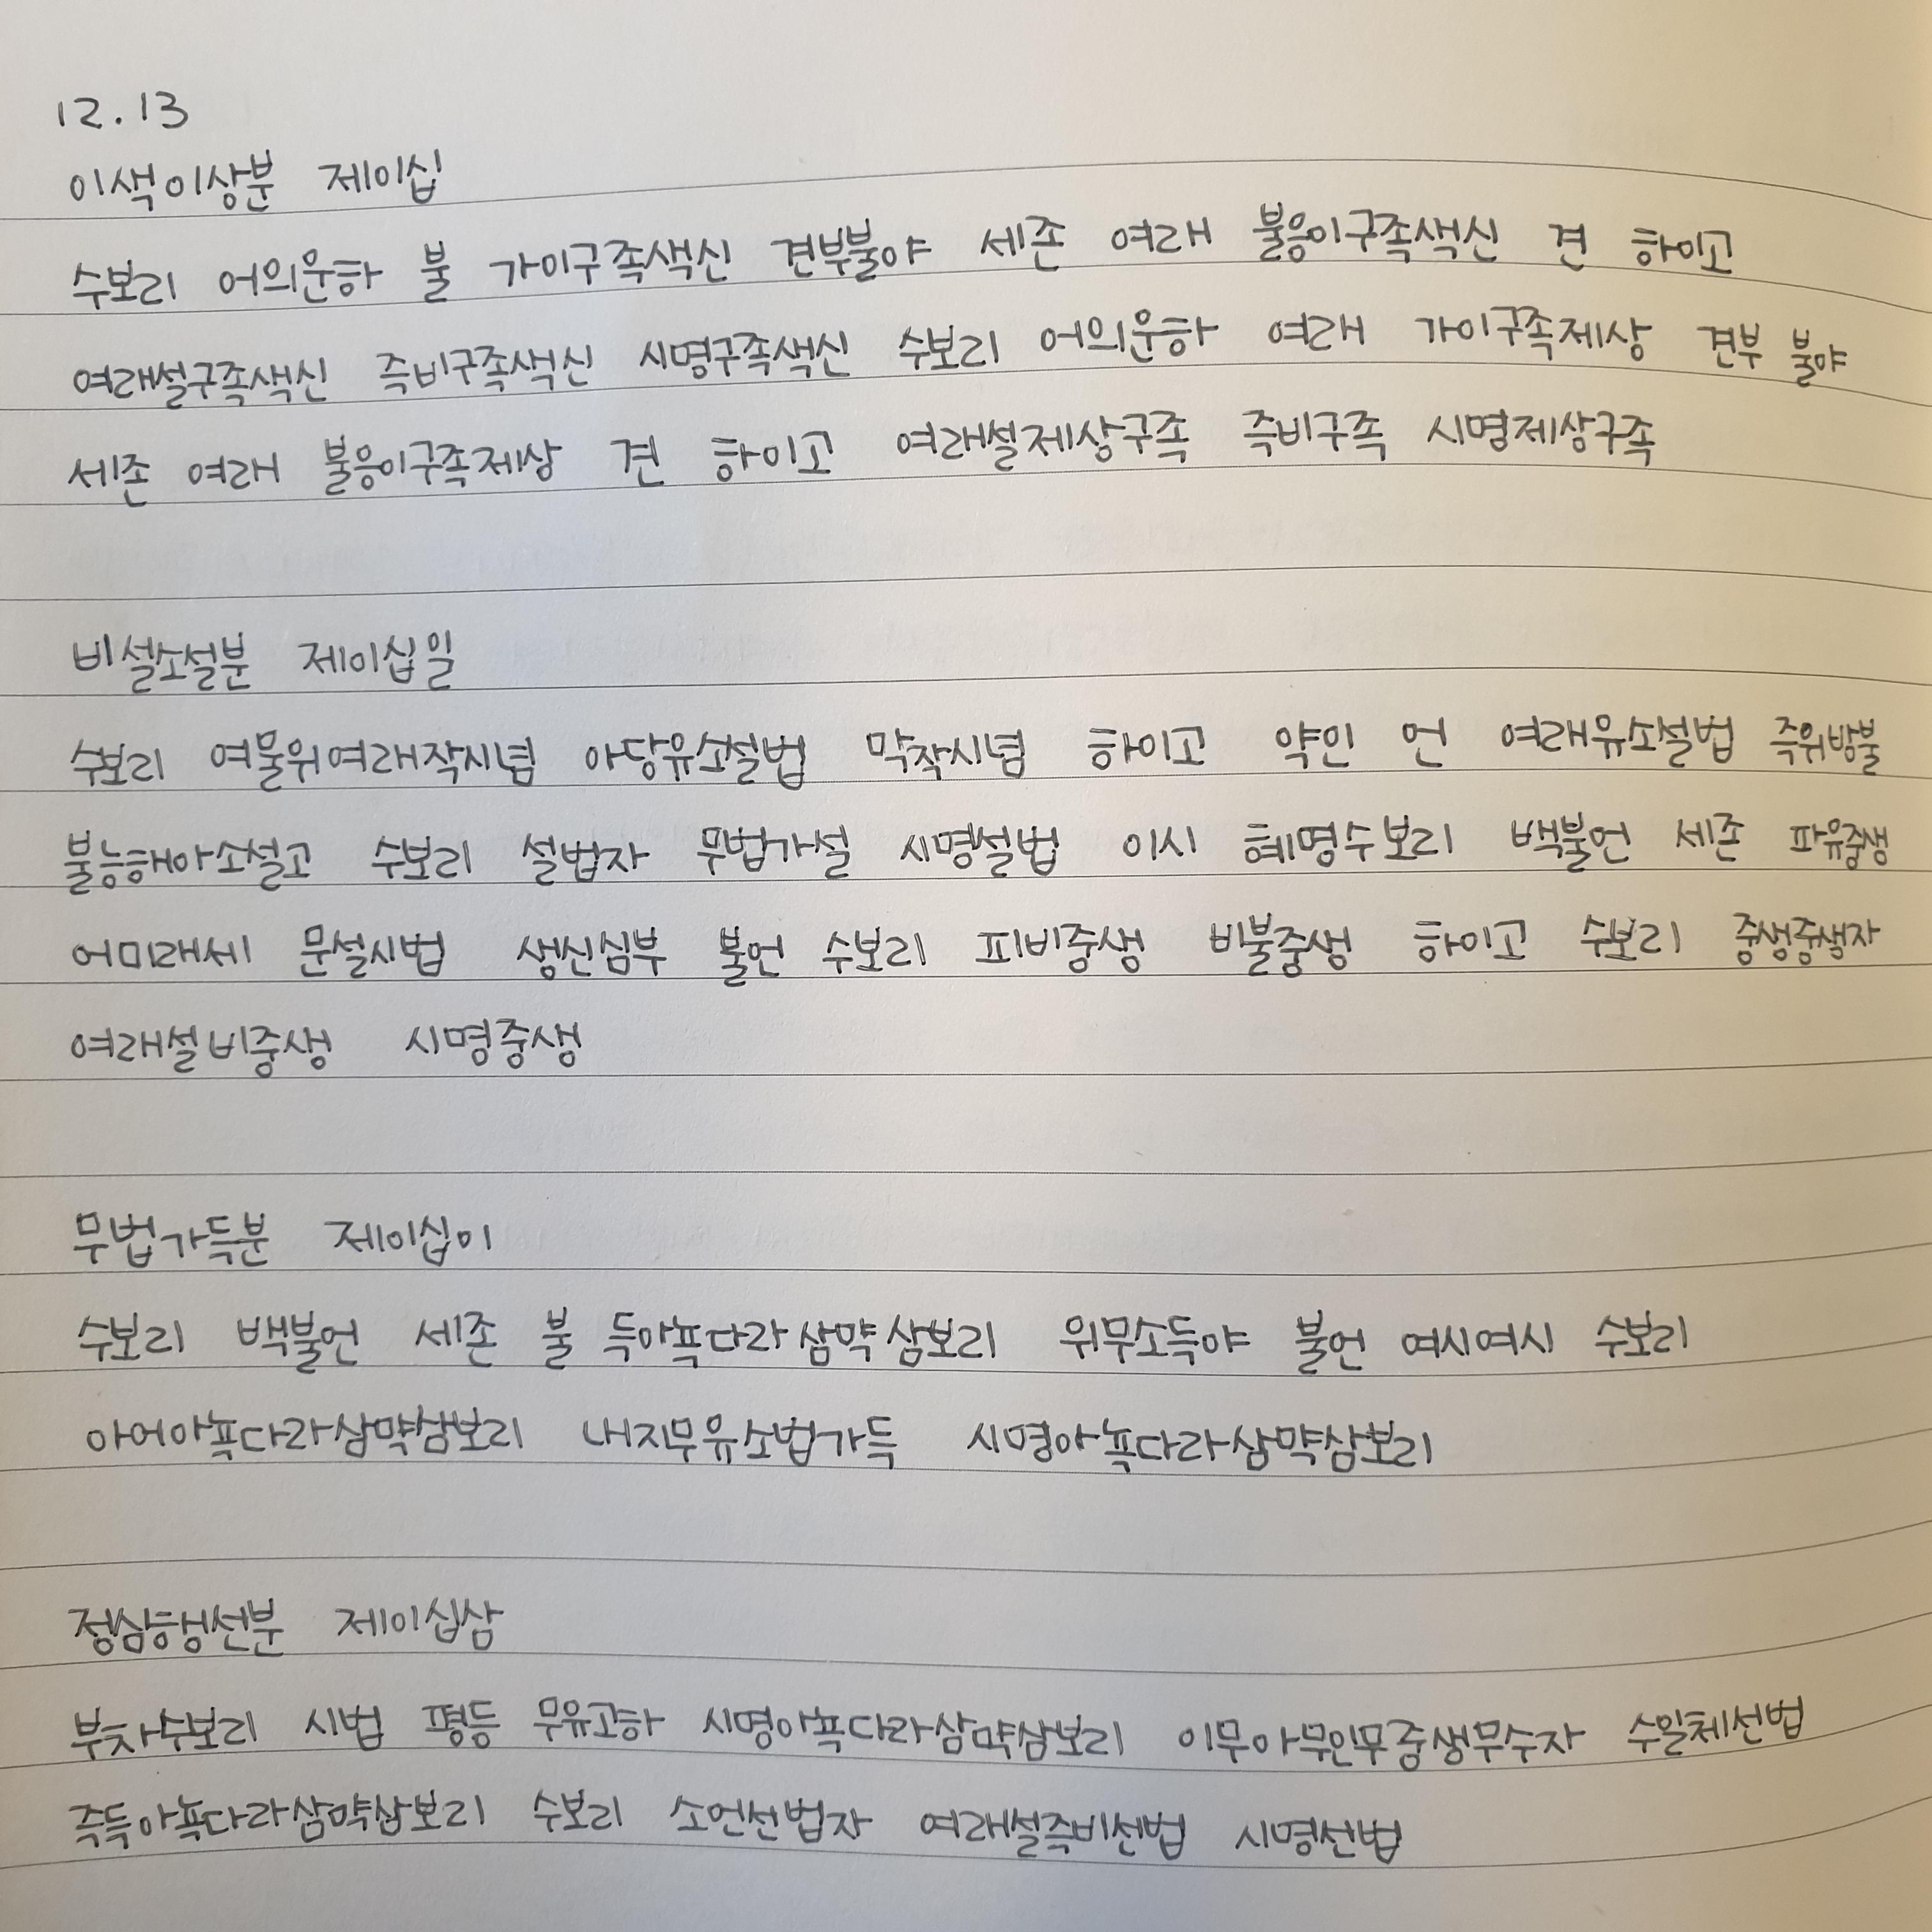 12.13
이색이상분 제이십
수보리 어의운하 불 가이구족색신 견부불야 세존 여래 불응이구족색신 견 하이고
여래설구족색신 즉비구족색신 시명구족색신 수보리 어의운하 여래 가이구족제상 견부 불야
세존 여래 불응이구족제상 견 하이고 여래설제상구족 즉비구족 시명제상구족
비설소설분 제이십일
수보리 여물위여래작시념 아당유소설법 막작시념 하이고 약인 언 여래유소설법 즉위방불
불능해아소설고 수보리 설법자 무법가설 시명설법 이시 혜명수보리 백불언 세존 파유중생
어미래세 문설시법 생신심부 불언 수보리 피비중생 비불중생 하이고 수보리 중생중생자
여래설비중생 시명중생
무법가득분 제이십이
수보리 백불언 세존 불 득아뇩다라삼먁삼보리 위무소득야 불언 여시여시 수보리
아어아뇩다라삼먁삼보리 내지무유소법가득 시명아뇩다라삼먁삼보리
정심행선분 제이십삼
부차수보리 시법 평등 무유고하 시명아뇩다라삼먁삼보리 이무아무인무중생무수자 수일체선법
즉득아뇩다라삼먁삼보리 수보리 소언선법자 여래설즉비선법 시명선법